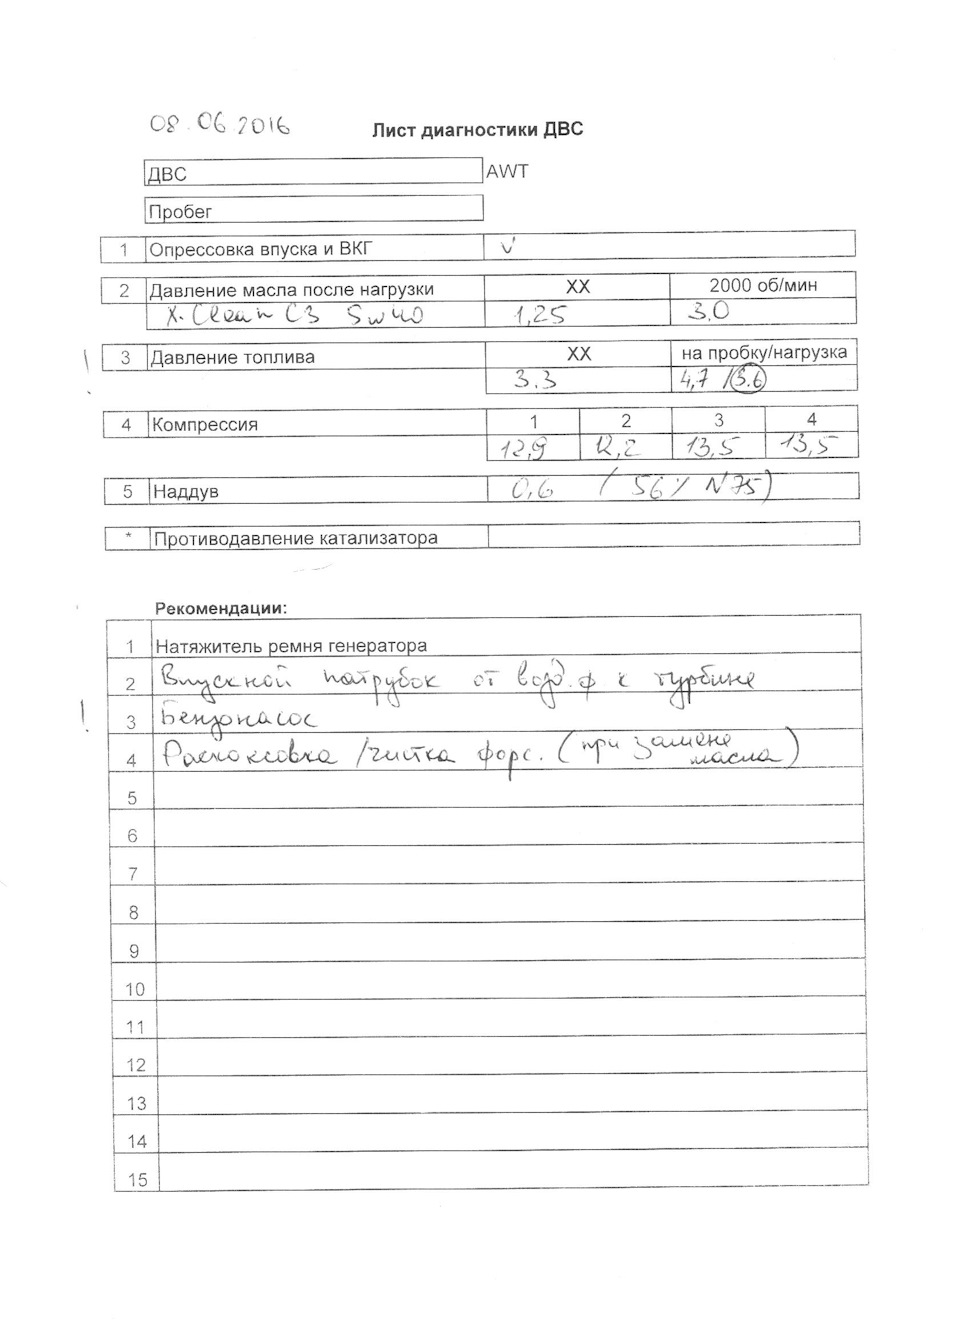 08.06.2016 Лист диагностики ДВС
ДВС AWT
Пробег
1 Опрессовка впуска и ВКГ v
2 Давление масла после нагрузки ХХ 2000 об/мин
X-Clean C3 5w40 1,25 3.0
! 3 Давление топлива ХХ на пробку/нагрузка
3.3 4,7 /3.6
4 Компрессия 1 2 3 4
12,9 12,2 13,5 13,5
5 Наддув 0,6 (56% N75)
* Противодавление катализатора
Рекомендации:
1 Натяжитель ремня генератора
2 Впускной патрубок от возд.ф к турбине
! 3 Бензонасос
4 Раскоксовка /чистка форс. (при замене масла)
5
6
7
8
9
10
11
12
13
14
15